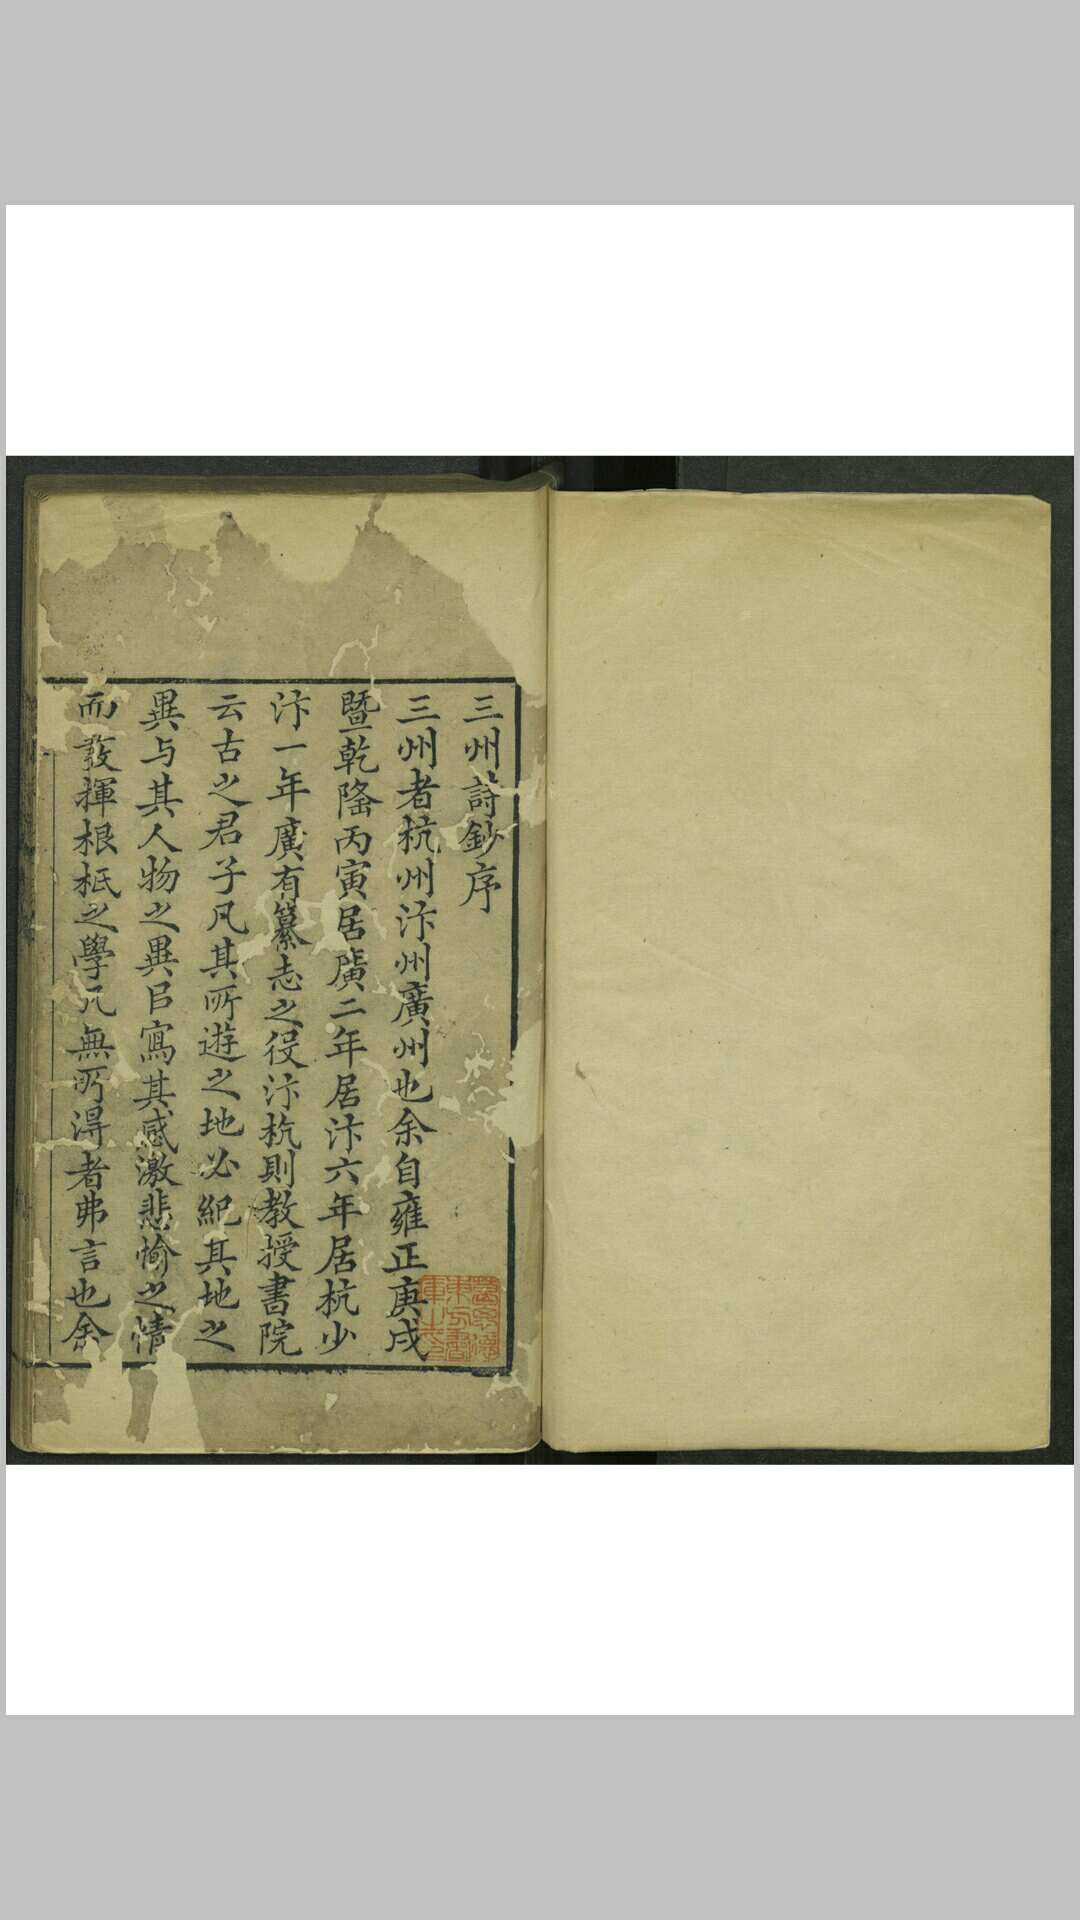 三州詩鈔序
三州者杭州汴州廣州也余自雍正庚戌
暨乾隆丙寅居廣二年居汴六年居杭少
汴一年廣有纂志之役汴杭則教授書院
云古之君子凡其所遊之地必紀其地之
異与其人物之異㠯寫其感激悲愉之情
而發揮根柢之學凡無所得者弗言也余